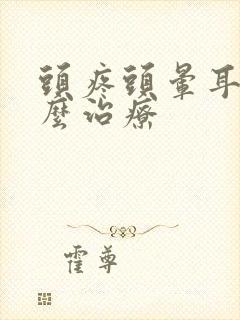 頭疼頭暈耳
麼治療
霍尊